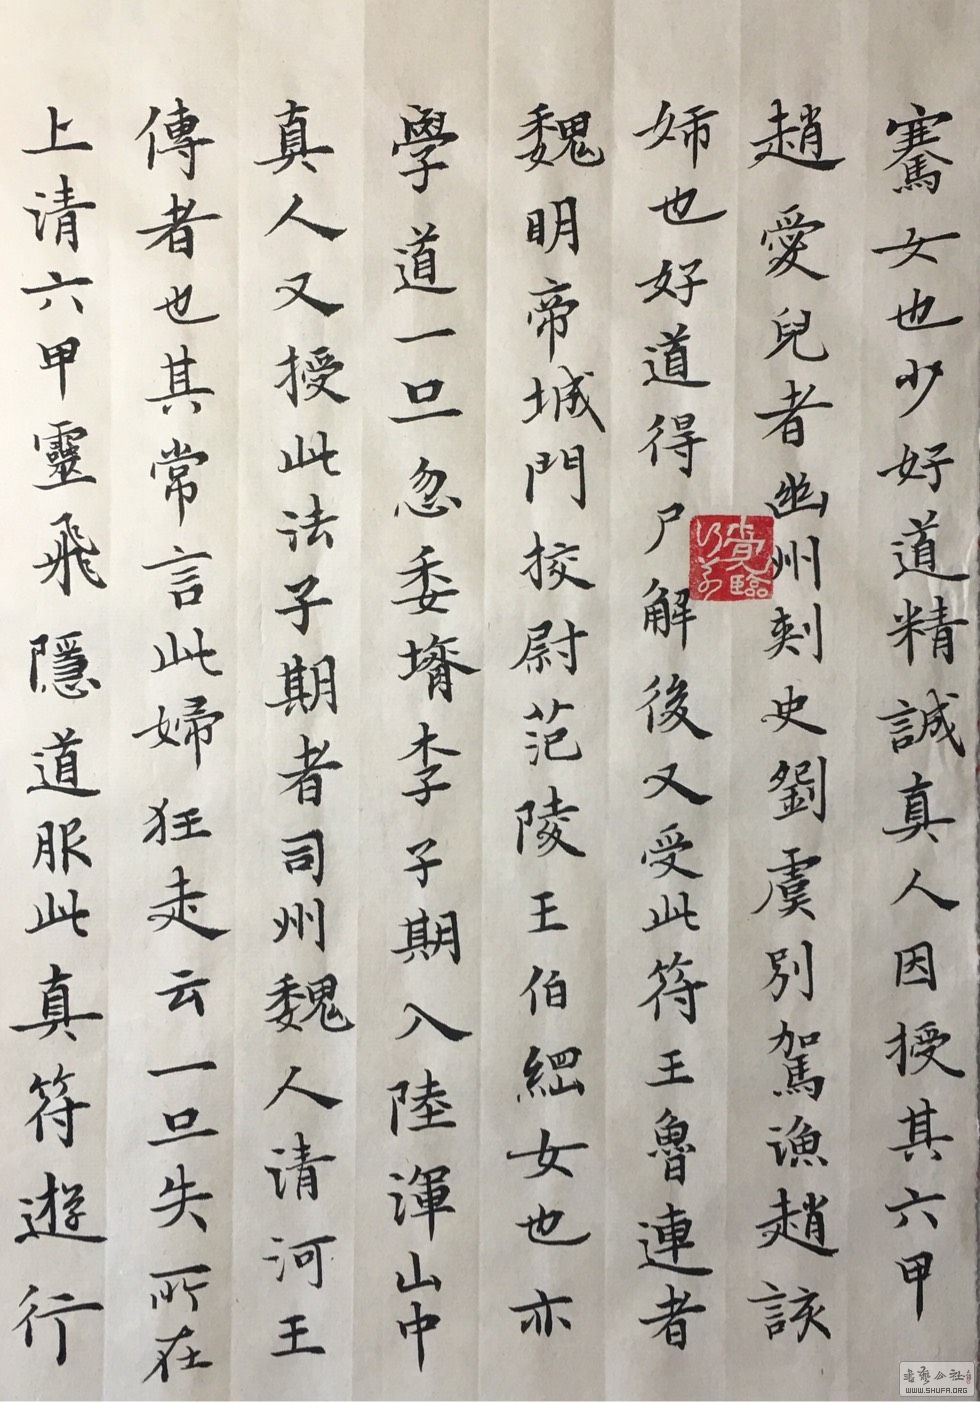 騫女也少好道精誠真人因授其六甲
趙愛兒者幽州刺史劉虞別駕漁趙該
姉也好道得尸解後又受此符王魯連者
魏明帝城門挍尉范陵王伯綑女也亦
學道一旦忽委壻李子期入陸渾山中
真人又授此法子期者司州魏人清河王
傳者也其常言此婦狂走云一旦失所在
上清六甲靈飛隱道服此真符遊行
覺臨
书艺公社
WWW.SHUFA.ORG